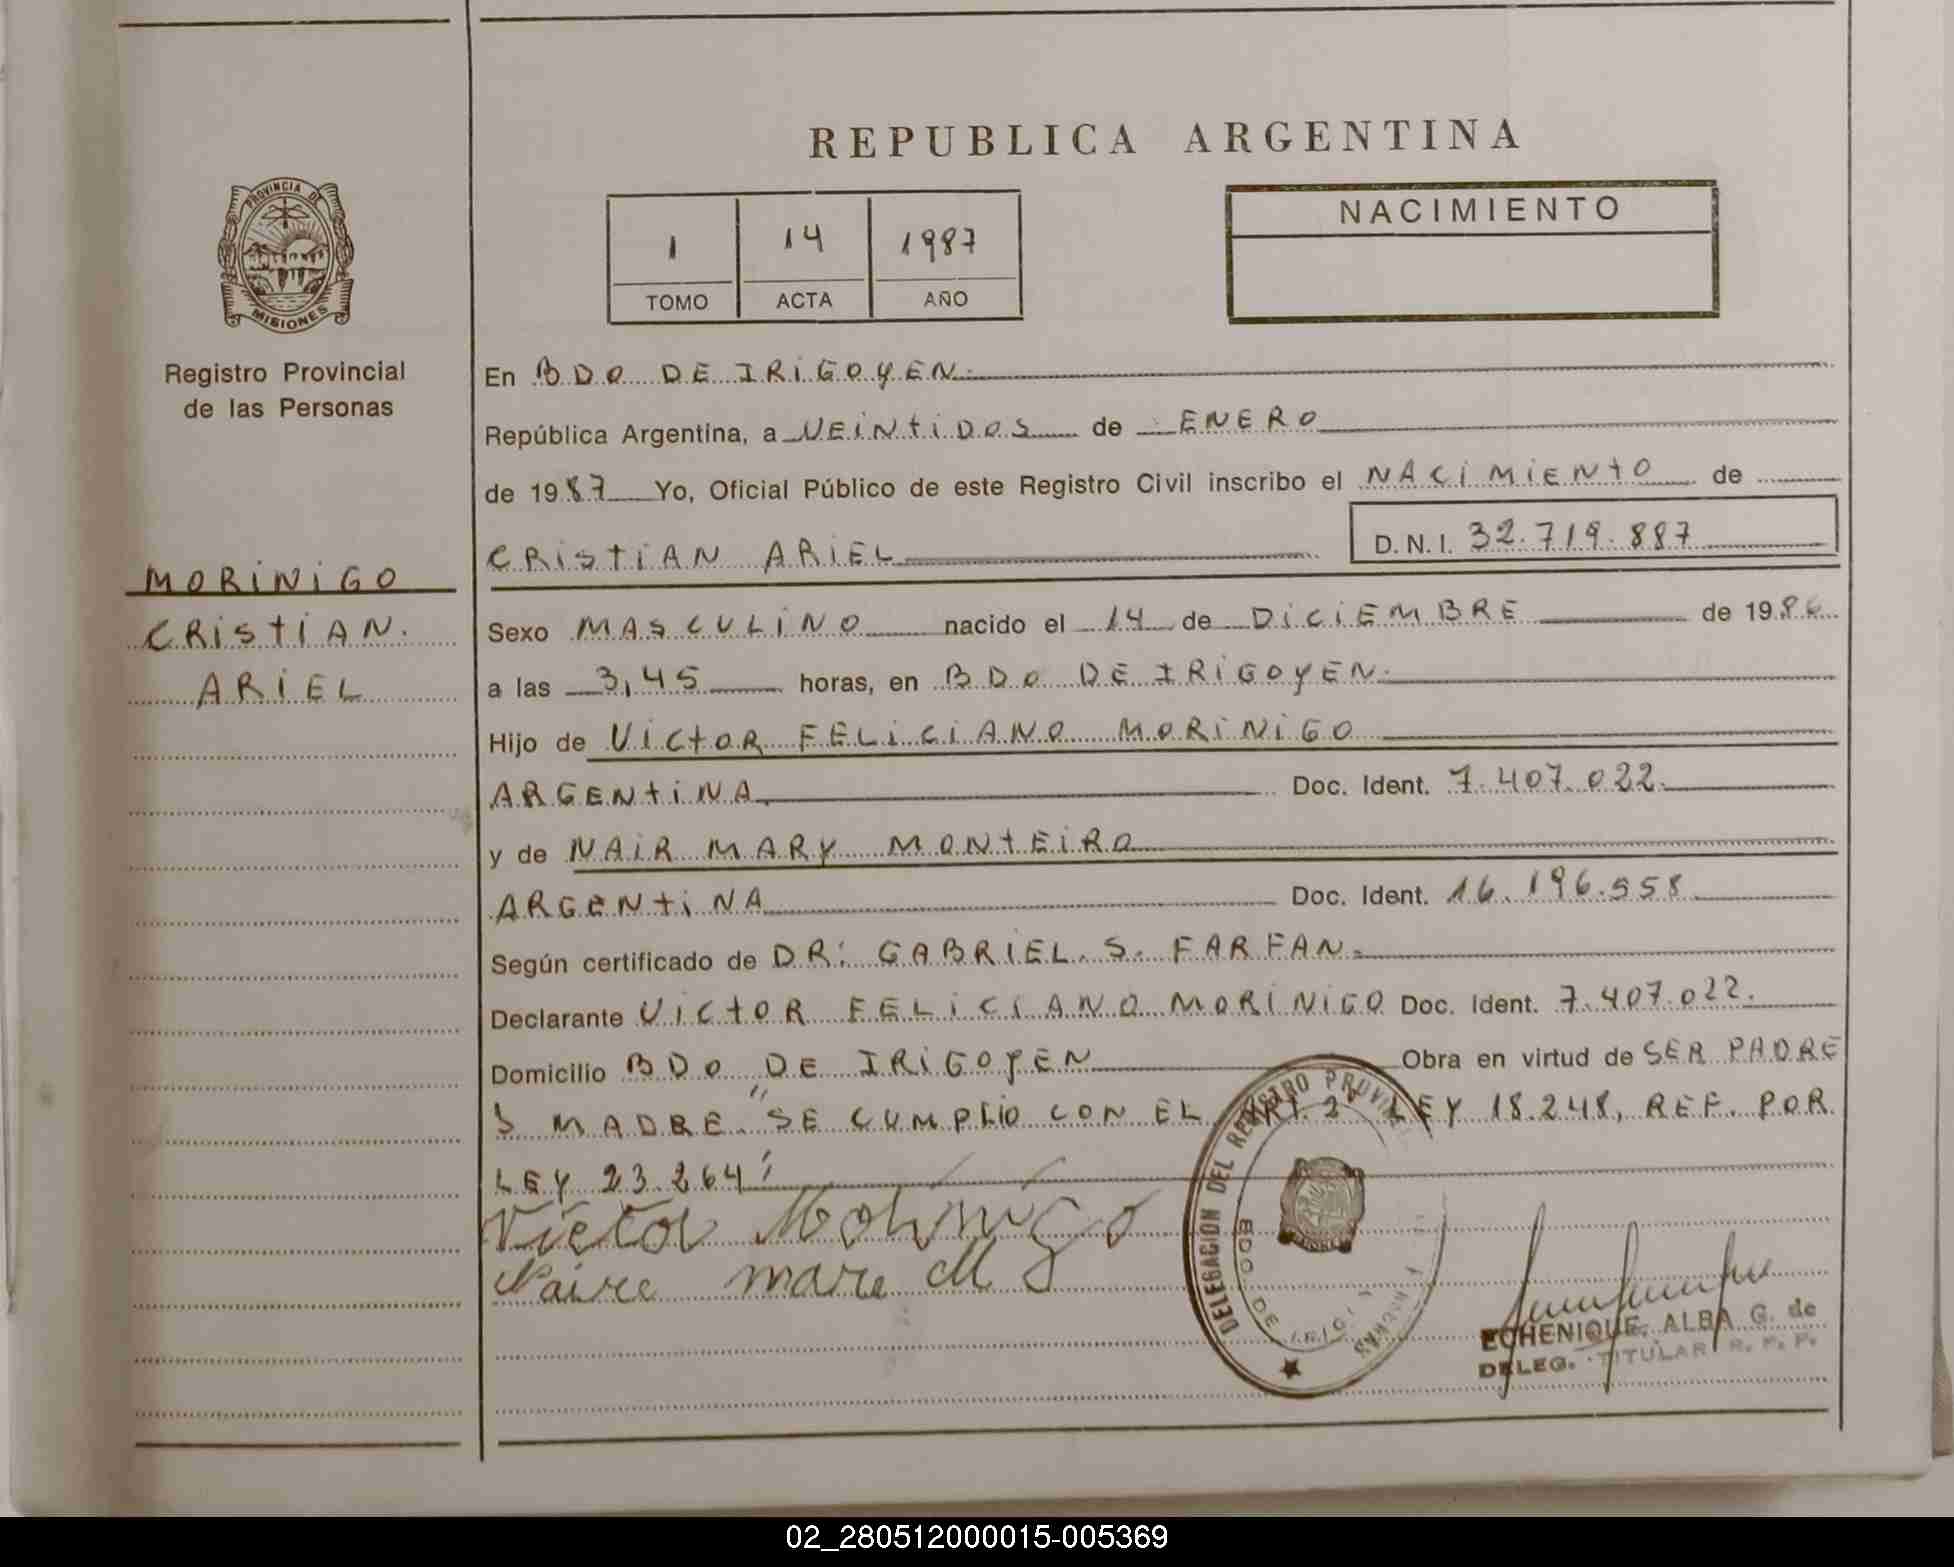 REPUBLICA ARGENTINA
PROVINCIA DE
MISIONES
Registro Provincial
de las Personas
MORINIGO
CRISTIAN.
ARIEL
1 14 1987
TOMO ACTA AÑO
NACIMIENTO
En BDO DE IRIGOYEN.
República Argentina, a VEINTIDOS de ENERO
de 1987 Yo, Oficial Público de este Registro Civil inscribo el NACIMIENTO de
CRISTIAN ARIEL D.N.I. 32.719.887
Sexo MASCULINO nacido el 14 de DICIEMBRE de 1986
a las 3,45 horas, en BDO DE IRIGOYEN.
Hijo de VICTOR FELICIANO MORINIGO
ARGENTINA Doc. Ident. 7.407.022.
y de NAIR MARY MONTEIRO
ARGENTINA Doc. Ident. 16.196.558
Según certificado de DR: GABRIEL. S. FARFAN.
Declarante VICTOR FELICIANO MORINIGO Doc. Ident. 7.407.022.
Domicilio BDO DE IRIGOYEN Obra en virtud de SER PADRE
Y MADRE. "SE CUMPLIO CON EL ART. 2º LEY 18.248, REF. POR
LEY 23.264"
Victor Morinigo
Naire mare M
DELEGACION DEL REGISTRO PROVIN
BDO. DE IRIGOY
ECHENIQUE, ALBA G. de
DELEG. TITULAR R. P. P.
02_280512000015-005369